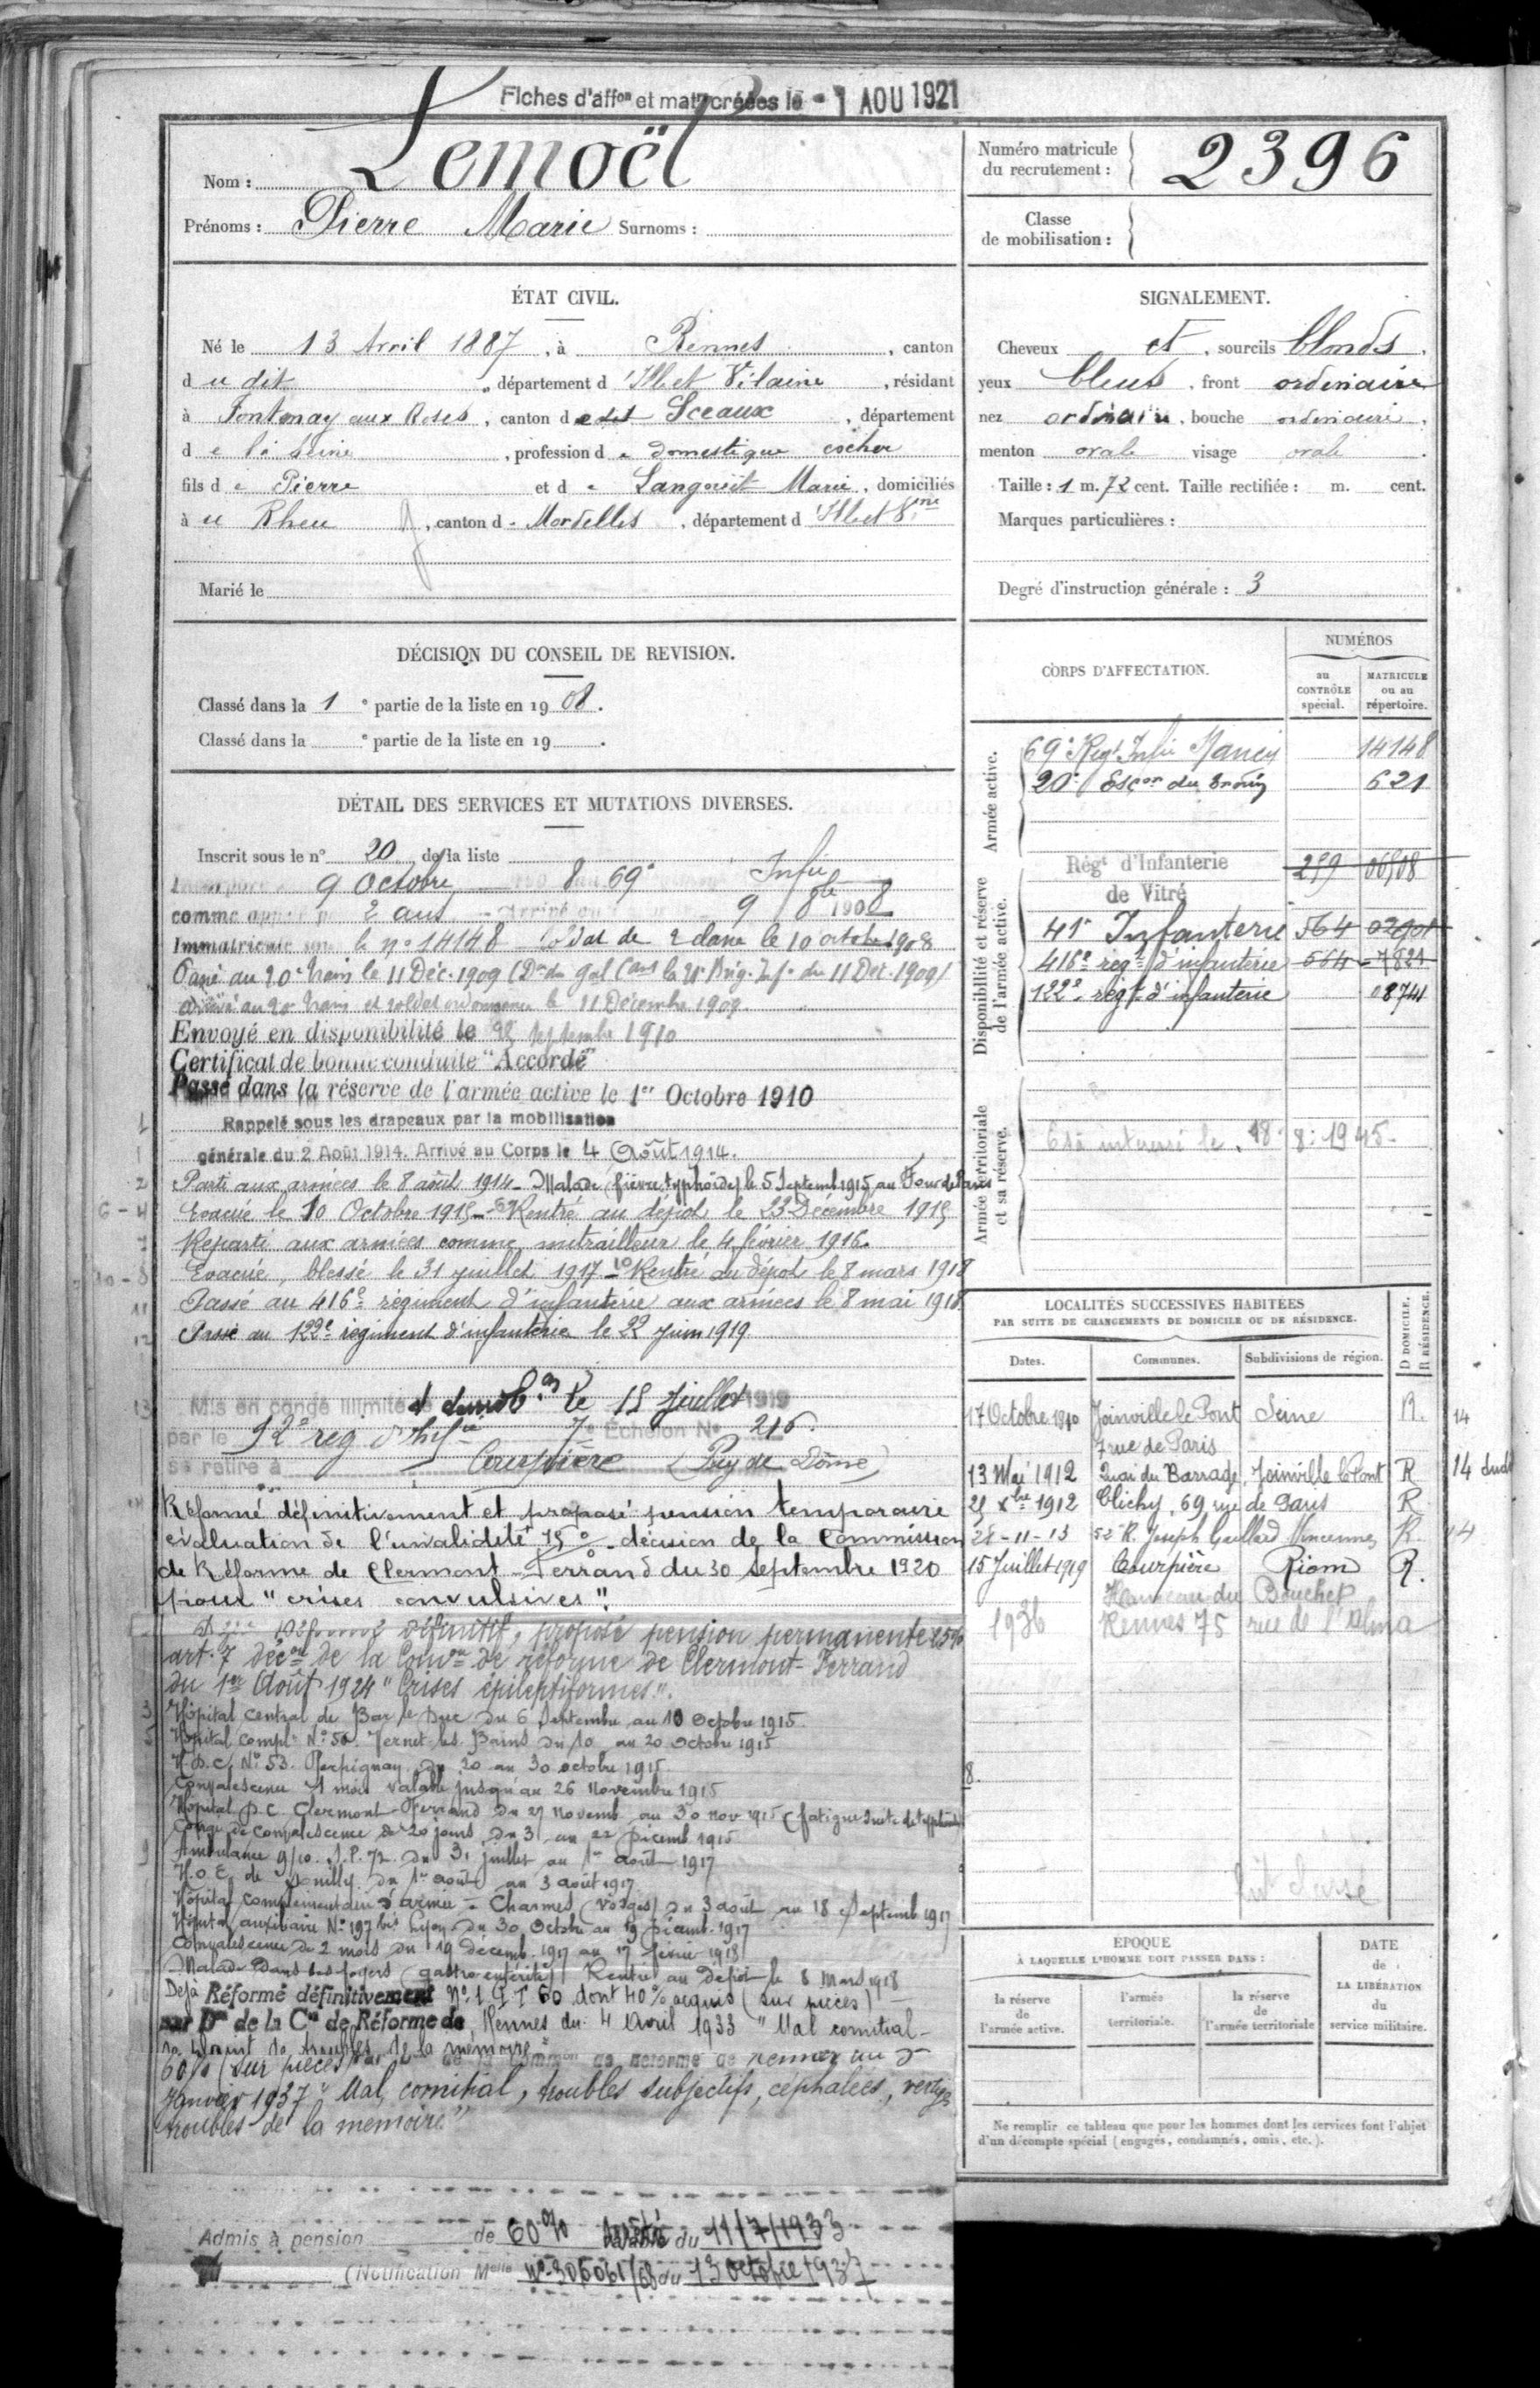 Fiches d'affon et matr créées le - 1 AOU 1921
Nom : Lemoël
Prénoms : Pierre Marie Surnoms :
Numéro matricule du recrutement : 2396
Classe de mobilisation :
ÉTAT CIVIL.
Né le 13 Avril 1887, à Rennes, canton
du dit, département d'Ille et Vilaine, résidant
à Fontenay aux Roses, canton de Sceaux, département
de la Seine, profession de domestique cocher
fils de Pierre et de Langouët Marie, domiciliés
au Rheu, canton de Mordelles, département d'Ille et Vne
Marié le
SIGNALEMENT.
Cheveux et, sourcils blonds,
yeux bleus, front ordinaire
nez ordinaire, bouche ordinaire,
menton ovale visage ovale.
Taille : 1 m. 72 cent. Taille rectifiée : m. cent.
Marques particulières :
Degré d'instruction générale : 3
DÉCISION DU CONSEIL DE REVISION.
Classé dans la 1e partie de la liste en 1908.
Classé dans la e partie de la liste en 19 .
DÉTAIL DES SERVICES ET MUTATIONS DIVERSES.
Inscrit sous le n° 20 de la liste
9 Octobre 8 69e Infie
comme appelé 2 ans - Arrivé au 9 8bre 1908
Immatriculé sous le n° 14148 Soldat de 2 classe le 10 octobre 1908
Passé au 20e train le 11 Déc. 1909 (Don du Gal Cant la 21e Brig. Inf. du 11 Déc. 1909)
Arrivé au 20e train et soldat ordonnance le 11 Décembre 1909.
Envoyé en disponibilité le 25 septembre 1910
Certificat de bonne conduite "Accordé"
Passé dans la réserve de l'armée active le 1er Octobre 1910
Rappelé sous les drapeaux par la mobilisation
générale du 2 Août 1914. Arrivé au Corps le 4 Août 1914.
Parti aux armées le 8 août 1914 - Malade (fièvre typhoïde) le 5 Septemb 1915 au Four de Paris
Evacué le 10 Octobre 1915 - Rentré au dépôt le 23 Décembre 1915
Reparti aux armées comme mitrailleur le 4 février 1916.
Evacué, blessé le 31 juillet 1917 - Rentré au dépôt le 8 mars 1918
Passé au 416e régiment d'infanterie aux armées le 8 mai 1918
Passé au 122e régiment d'infanterie le 22 Juin 1919
Mis en congé illimité de démobon le 15 Juillet 1919
par le 92e rég d'Infie 7e Echelon N° 216.
se retire à Courpière (Puy de Dôme)
Réformé définitivement et proposé pension temporaire
évaluation de l'invalidité 15% - décision de la Commission
de Réforme de Clermont-Ferrand du 30 septembre 1920
pour "crises convulsives".
Réformé définitif, proposé pension permanente 25%
art. 7 décon de la Comon de réforme de Clermont-Ferrand
du 1er Août 1924 "Crises épileptiformes".
Hôpital Central de Bar le Duc du 6 Septembre au 10 Octobre 1915.
Hôpital Complre N° 50. Vernet les Bains du 10 au 20 Octobre 1915
H.D.C. N° 53. Perpignan du 20 au 30 octobre 1915
Convalescence 1 mois valable jusqu'au 26 Novembre 1915
Hôpital D.C. Clermont Ferrand du 27 Novemb au 30 nov 1915 (fatigue suite de typhoïde)
Congé de Convalescence de 20 jours du 3 au 22 Décemb 1915
Ambulance 9/10. S.P. 72. du 31 juillet au 1er août 1917
H.O.E. de du 1er août au 3 août 1917
Hôpital Complémentaire d'armée - Charmes (Vosges) du 3 août au 18 Septemb 1917
Hôpital auxiliaire N° 197 bis Lyon du 30 Octobre au 19 Décemb. 1917
Convalescence de 2 mois du 19 décemb. 1917 au 17 février 1918
Malade dans ses foyers (gastro entérite) Rentré au dépôt le 8 Mars 1918
Déjà Réformé définitivement N° 1 G T 60 dont 40% acquis (sur pièces)
par Don de la Con de Réforme de Rennes du 4 Avril 1933 "Mal comitial -
troubles de la mémoire"
60% (sur pièces) de la Common de Réforme de Rennes du 5
Janvier 1937 "Mal comitial, troubles subjectifs, céphalées, vertiges
troubles de la mémoire"
Admis à pension de 60% du 11/7/1933
(Notification Melle N° 306061/68 du 13 octobre 1937
CORPS D'AFFECTATION.
NUMÉROS
au CONTRÔLE spécial.
MATRICULE ou au répertoire.
Armée active.
69e Régt Infie Nancy 14148
20e Escon du train 621
Disponibilité et réserve de l'armée active.
Régt d'Infanterie de Vitré 259 06508
41e Infanterie 564 02901
416e regt d'infanterie 564 7821
122e regt d'infanterie 08741
Armée territoriale et sa réserve.
le 18.8.1945.
LOCALITÉS SUCCESSIVES HABITÉES
PAR SUITE DE CHANGEMENTS DE DOMICILE OU DE RÉSIDENCE.
Dates. Communes. Subdivisions de région. D DOMICILE. R RÉSIDENCE.
17 Octobre 1910 Joinville le Pont Seine R. 14
7 rue de Paris
13 Mai 1912 Quai du Barrage, Joinville le Pont R 14
25 Xbre 1912 Clichy, 69 rue de Paris R
28-11-13 52 R. Joseph Gaillard Vincennes R. 14
15 Juillet 1919 Courpière Riom R.
Hameau du Bouchet
1936 Rennes 75 rue de l'Alma
EPOQUE
À LAQUELLE L'HOMME DOIT PASSER DANS :
la réserve de l'armée active.
l'armée territoriale.
la réserve de l'armée territoriale
DATE de LA LIBÉRATION du service militaire.
Ne remplir ce tableau que pour les hommes dont les services font l'objet
d'un décompte spécial (engagés, condamnés, omis, etc.).